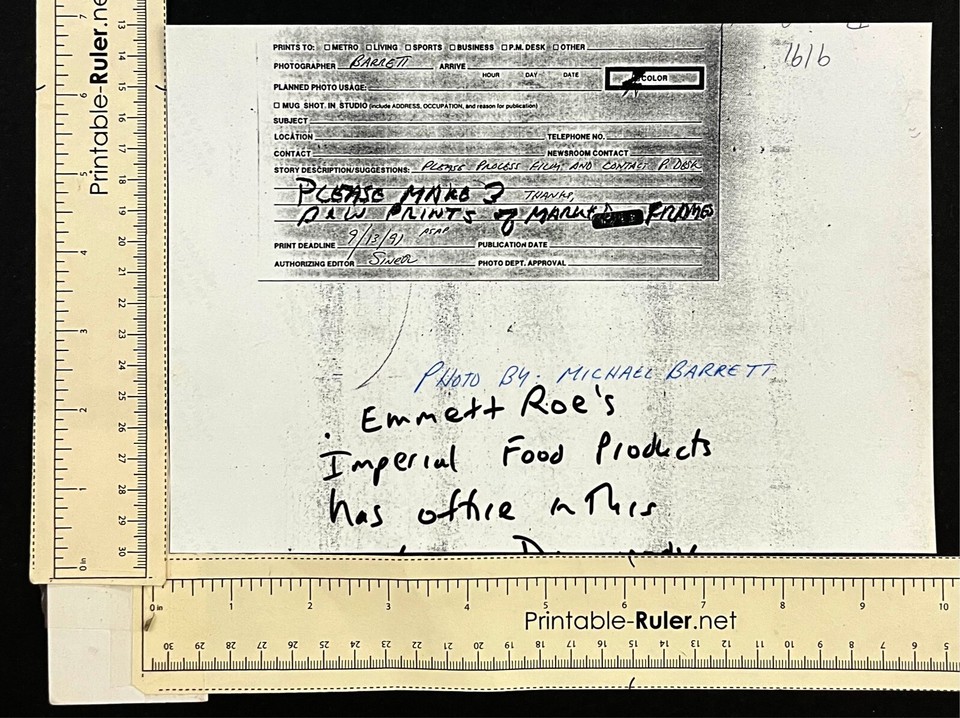 PRINTS TO: ☐ METRO ☐ LIVING ☐ SPORTS ☐ BUSINESS ☐ P.M. DESK ☐ OTHER
PHOTOGRAPHER BARRETT ARRIVE
HOUR DAY DATE
COLOR
PLANNED PHOTO USAGE:
☐ MUG SHOT. IN STUDIO (include ADDRESS, OCCUPATION, and reason for publication)
SUBJECT
LOCATION TELEPHONE NO.
CONTACT NEWSROOM CONTACT
STORY DESCRIPTION/SUGGESTIONS: PLEASE PROCESS FILM, AND CONTACT P. DESK
PLEASE MAKE 3 THANKS,
B&W PRINTS of MARKED FRAMES
ASAP
PRINT DEADLINE 9/13/91 PUBLICATION DATE
AUTHORIZING EDITOR PHOTO DEPT. APPROVAL
1616
PHOTO BY. MICHAEL BARRETT
Emmett Roe's
Imperial Food Products
has office in This
Printable-Ruler.net
7
6
5
4
3
2
1
0 in
13
14
15
16
17
18
19
20
21
22
23
24
25
26
27
28
29
30
0 in 1 2 3 4 5 6 7 8 9 10
Printable-Ruler.net
30 29 28 27 26 25 24 23 22 21 20 19 18 17 16 15 14 13 12 11 10 9 8 7 6 5